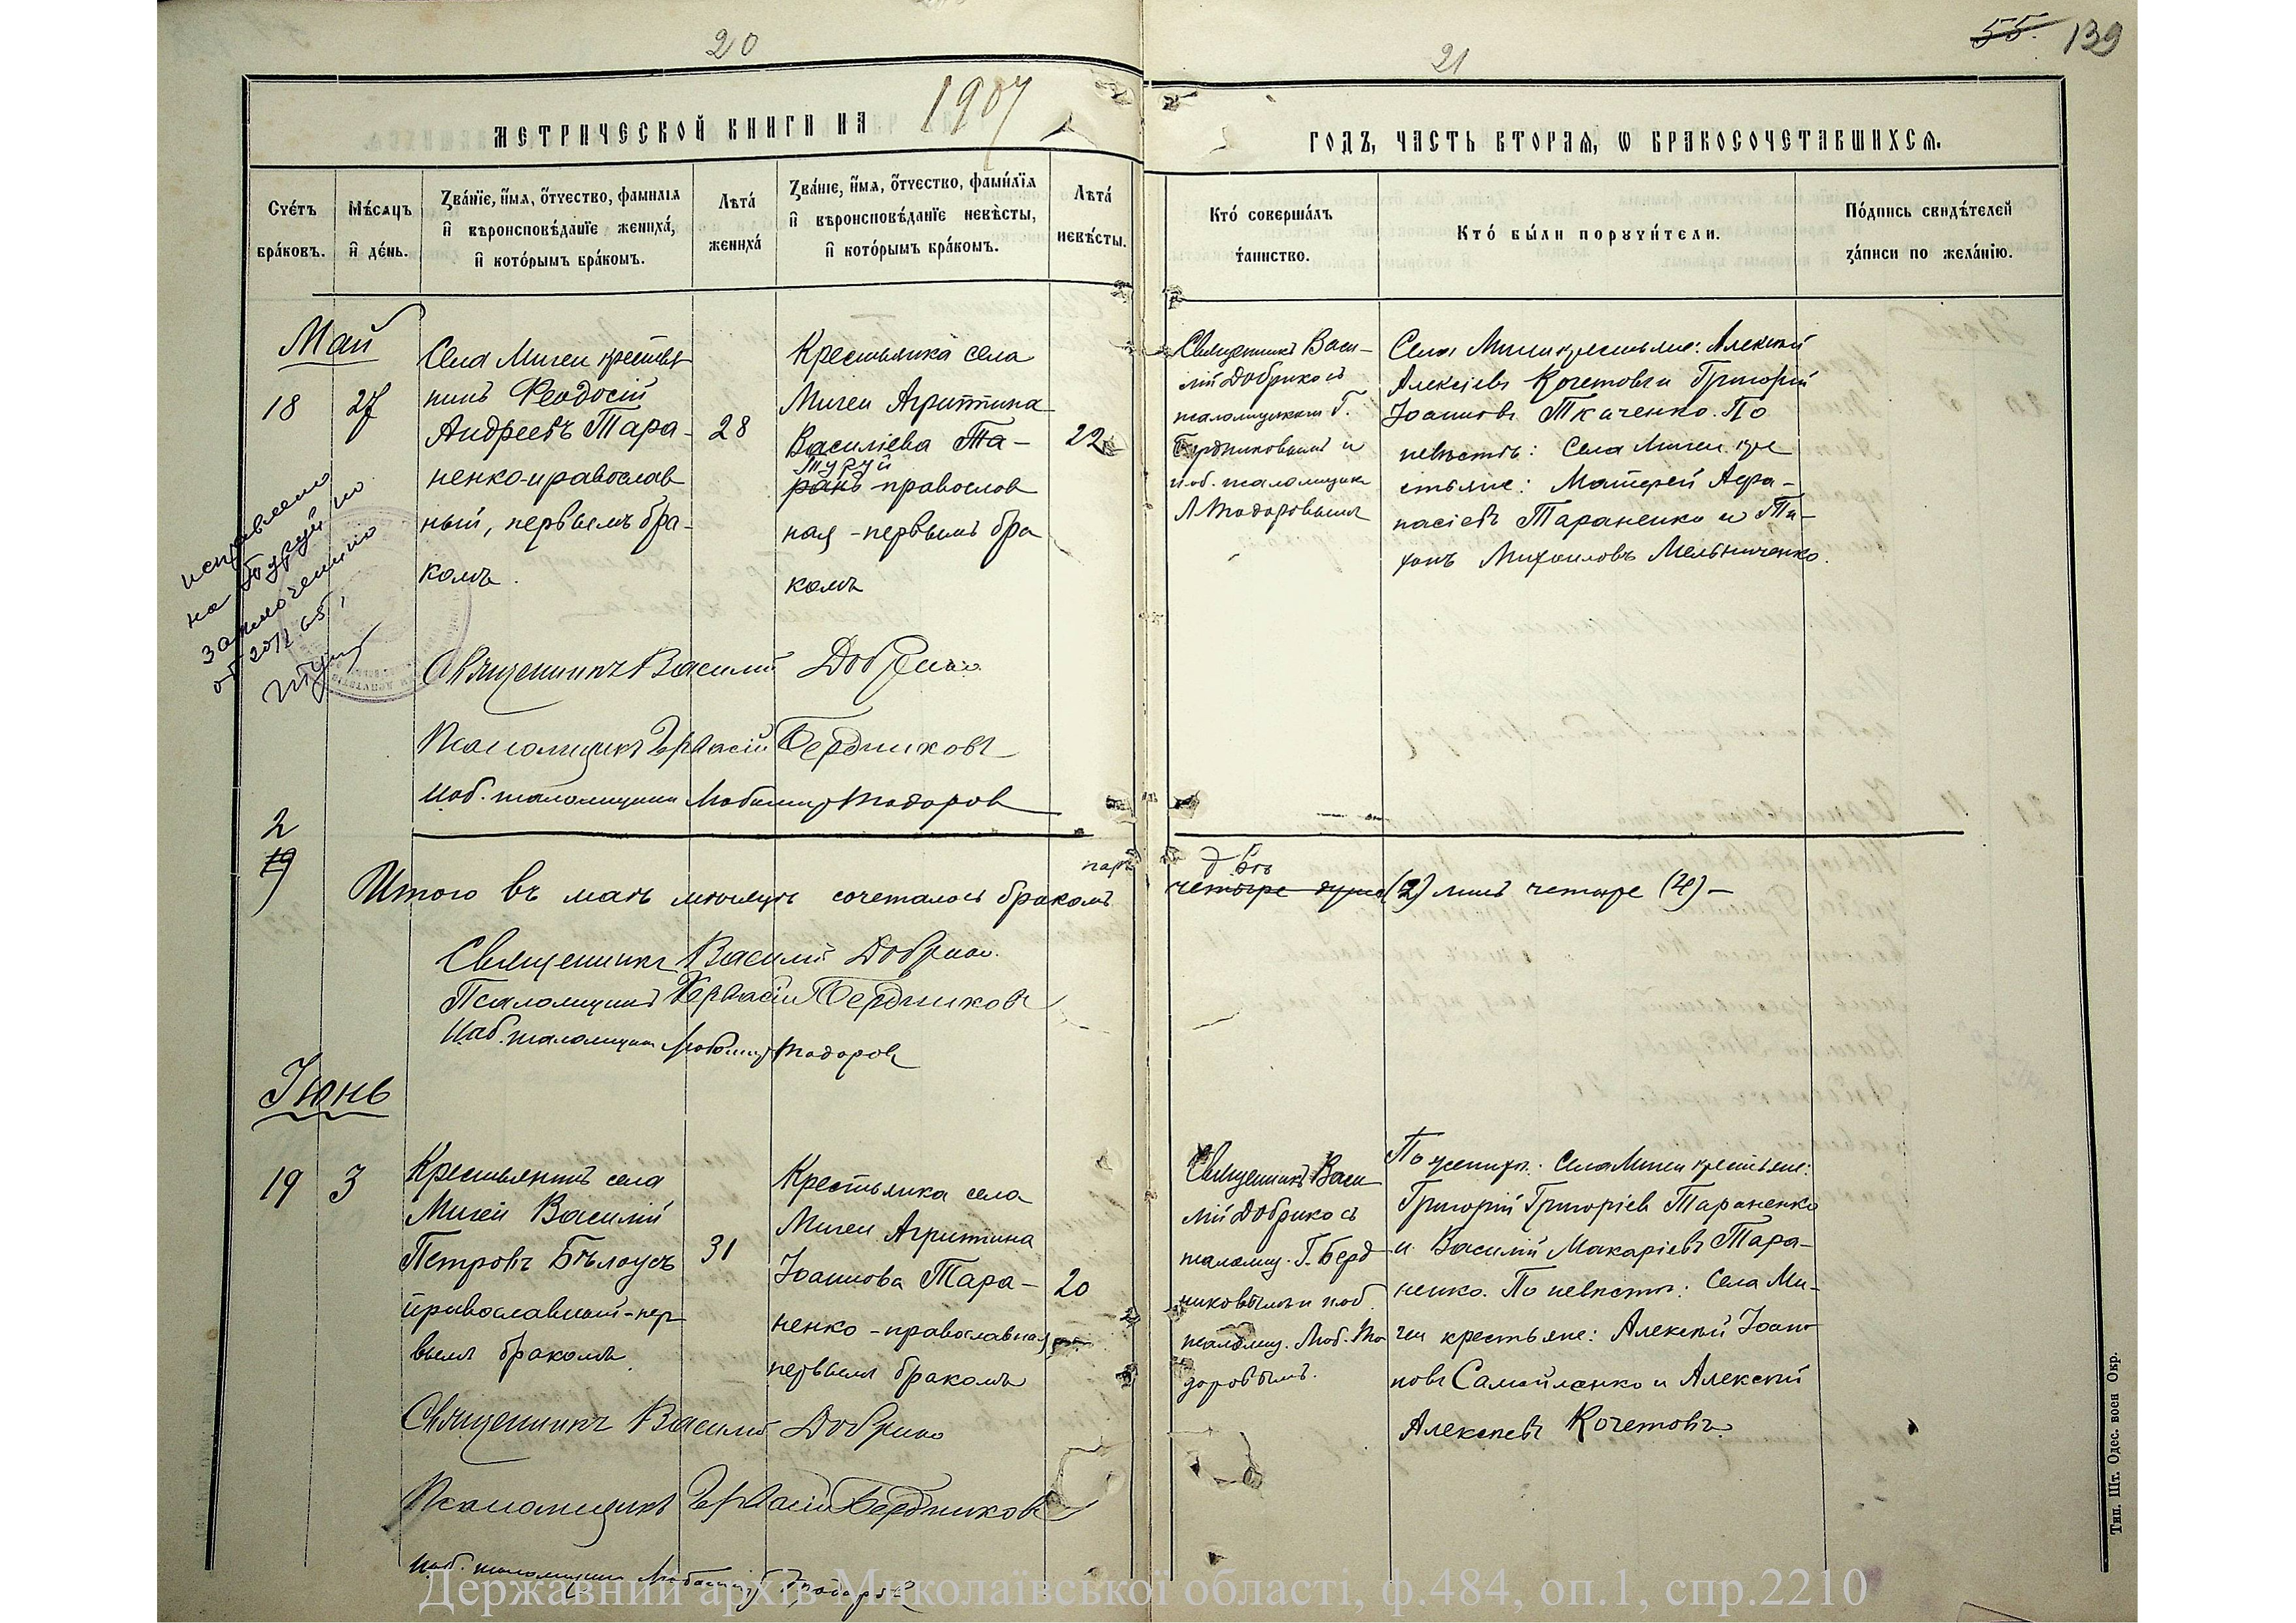 20
21
55. 139
МЕТРИЧЕСКОЙ КНИГИ НА 1907
ГОДЪ, ЧАСТЬ ВТОРАЯ, Ѡ БРАКОСОЧЕТАВШИХСЯ.
Счетъ браковъ.
Мѣсяцъ и день.
Званїе, имя, отчество, фамилія
и вѣроисповѣданїе жениха,
и которымъ бракомъ.
Лѣта жениха
Званїе, имя, отчество, фамилїя
и вѣроисповѣданїе невѣсты,
и которымъ бракомъ.
Лѣта невѣсты.
Кто совершалъ
таинство.
Кто были поручители.
Подпись свидѣтелей
записи по желанію.
Май
18
27
Села Мигеи крестья
нинъ Феодосій
Андреевъ Тара-
ненко-православ
ный, первымъ бра-
комъ.
28
Крестьянка села
Мигеи Агриппина
Василіева Та-
Туруй
ранъ-православ
ная-первымъ бра
комъ
22
Священникъ Васи-
лій Добрико съ
псаломщикомъ Г.
Бердниковымъ и
и об. псаломщика
Л Тодоровымъ
Села Мигеи крестьяне: Алексѣй
Алексѣевъ Кочетовъ и Григорій
Іоанновъ Ткаченко. По
невѣстѣ: Села Мигеи кре
стьяне: Матфей Афа-
насіевъ Тараненко и Ти-
хонъ Михаиловъ Мельниченко.
исправлено
на Туруй по
заключению
Священникъ Василій Добрико
Псаломщикъ Гервасій Бердниковъ
И об. псаломщика Любомиръ Тодоров
2
19
Итого въ маѣ мѣсяцѣ сочеталось бракомъ
паръ
двѣ
четыре души (2) лицъ четыре (4) —
Священникъ Василій Добрико.
Псаломщикъ Гервасій Бердниковъ
И об. псаломщика Любомиръ Тодоров
Іюнь
19
3
Крестьянинъ села
Мигеи Василій
Петровъ Бѣлоусъ
православный-пер
вымъ бракомъ
31
Крестьянка села
Мигеи Агриппина
Іоаннова Тара-
ненко-православная
первымъ бракомъ
20
Священникъ Васи
лій Добрико съ
псаломщ. Г. Берд
никовымъ и и об.
псаломщ. Люб. То
доровымъ.
По женихѣ: Села Мигеи крестьяне:
Григорій Григоріевъ Тараненко
и Василій Макаріевъ Тара-
ненко. По невѣстѣ: Села Ми-
геи крестьяне: Алексѣй Іоан-
новъ Самойленко и Алексѣй
Алексѣевъ Кочетовъ.
Священникъ Василій Добрико
Псаломщикъ Гервасій Бердниковъ
И об. псаломщика Любомиръ Тодоров
Тип. Шт. Одес. воен Окр.
Державний архів Миколаївської області, ф.484, оп.1, спр.2210